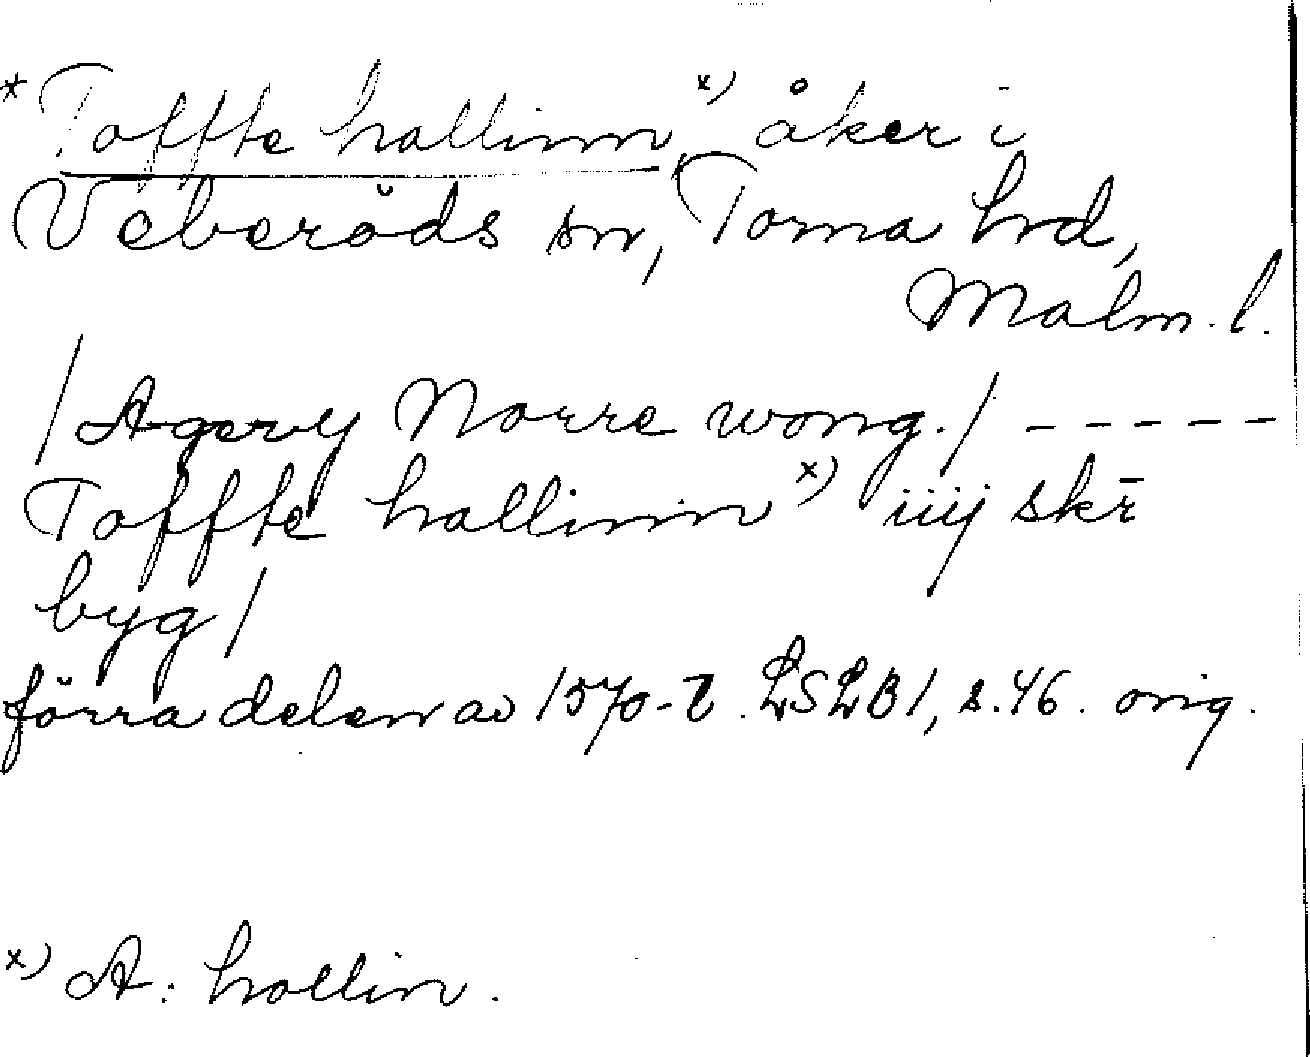 * Toffte hallinn x) åker i
Veberöds sn, Torna hrd,
Malm. l.
/Agervy Norre wong./ -----
Toffte hallinn x) iiij skr̄
byg/
förra delen av 1570-t. LSLB1, s.46. orig.
x) A: hollin.